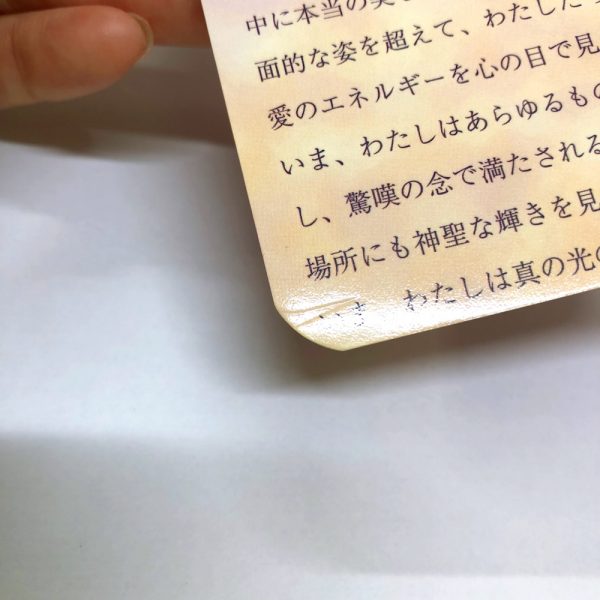 中に本当の美し
面的な姿を超えて、わたした
愛のエネルギーを心の目で見
いま、わたしはあらゆるもの
し、驚嘆の念で満たされる
場所にも神聖な輝きを見
いま、わたしは真の光の